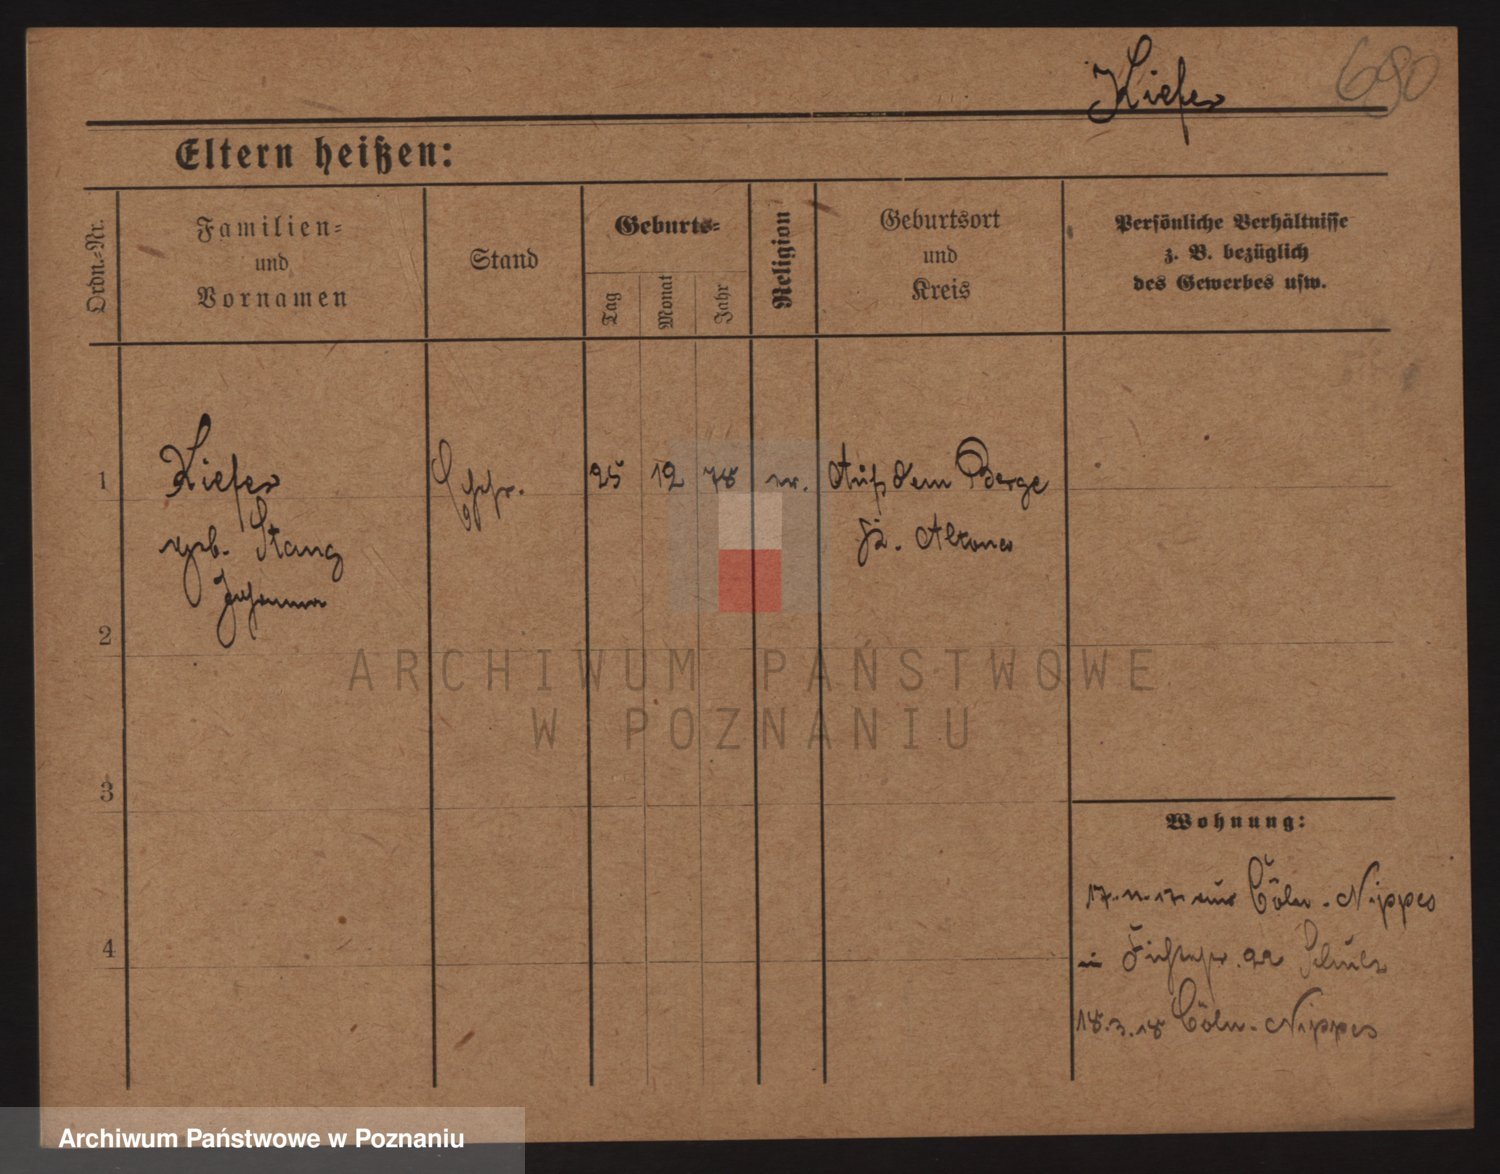 Kiefer
680
Eltern heißen:
Ordn.-Nr.
Familien-
und
Vornamen
Stand
Geburts-
Tag
Monat
Jahr
Religion
Geburtsort
und
Kreis
Persönliche Verhältnisse
z. B. bezüglich
des Gewerbes usw.
1 Kiefer 25 12 78 Auf dem Berge
geb. Stang Altona
Johanna
2
ARCHIWUM PAŃSTWOWE
W POZNANIU
3
Wohnung:
17.11.17 aus Cöln-Nippes
4
Fichtestr. 22 Schulz
18.3.18 Cöln-Nippes
Archiwum Państwowe w Poznaniu